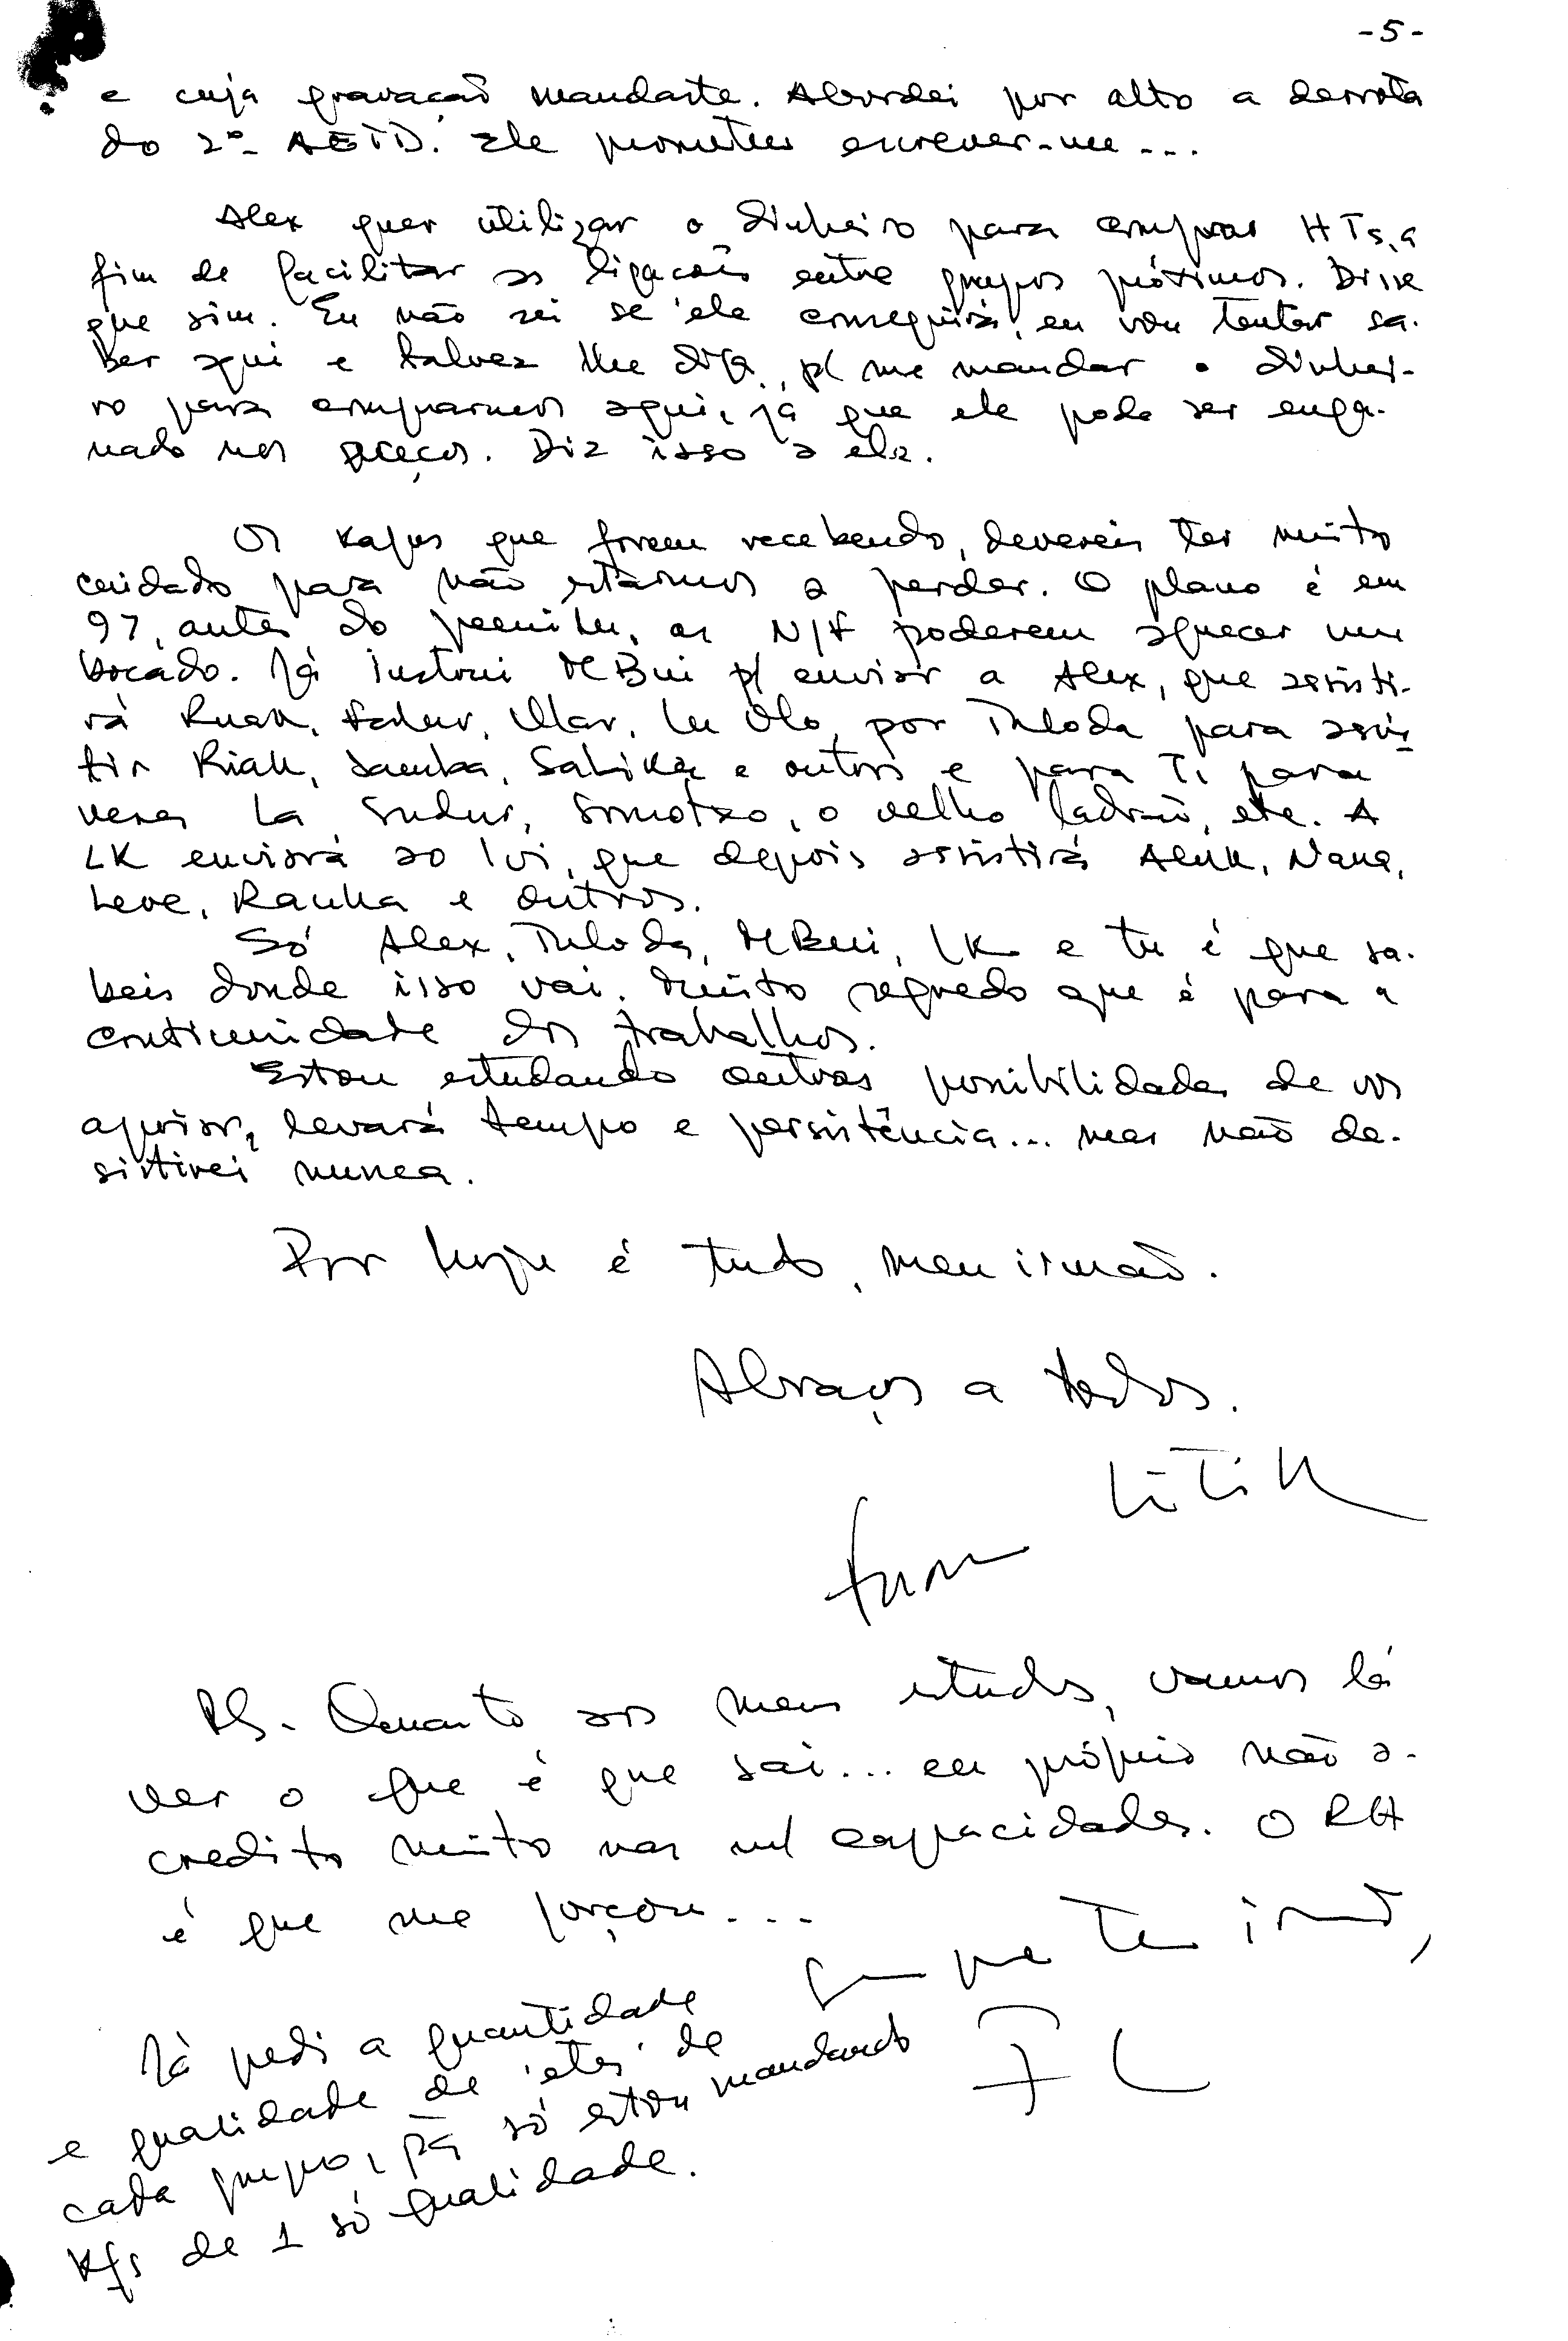 - 5 -
e cuja gravação mandaste. Abordei por alto a derrota
do 2º AETD. Ele prometeu escrever-me...
Alex quer utilizar o dinheiro para comprar HTs, a
fim de facilitar as ligações entre grupos próximos. Disse
que sim. Eu não sei se ele conseguirá, eu vou tentar sa-
ber aqui e talvez lhe diga, p/ me mandar o dinhei-
ro para comprarmos aqui, já que ele pode ser enga-
nado nos preços. Diz isso a ele.
Os kafes que forem recebendo, devereis ter muito
cuidado para não estarmos a perder. O plano é em
97, antes do pemilu, as N/F poderem aquecer um
bocado. Já instrui MBui p/ enviar a Alex, que assisti-
rá Ruak, Falur, Ular, Lu Olo, por Tuloda para assis-
tir Riak, Samba, Sabika e outros e para Ti para
veres La Sudur, Somotxo, o velho ladrão, etc. A
LK enviará ao Ivi, que depois assistirá Aluk, Nana,
Leve, Rauka e outros.
Só Alex, Tuloda, MBui, LK e tu é que sa-
beis donde isso vai. Muito segredo que é para a
continuidade dos trabalhos.
Estou estudando outras possibilidades de vos
apoiar, levará tempo e persistência... mas não de-
sistirei nunca.
Por hoje é tudo, meu irmão.
Abraços a todos.
PS. Quanto aos meus estudos, vamos lá
ver o que é que sai... eu próprio não a-
credito muito nas m/ capacidades. O RH
é que me forçou...
Já pedi a quantidade
e qualidade de 'etes' de
cada grupo, só estou mandando
kfs de 1 só qualidade.